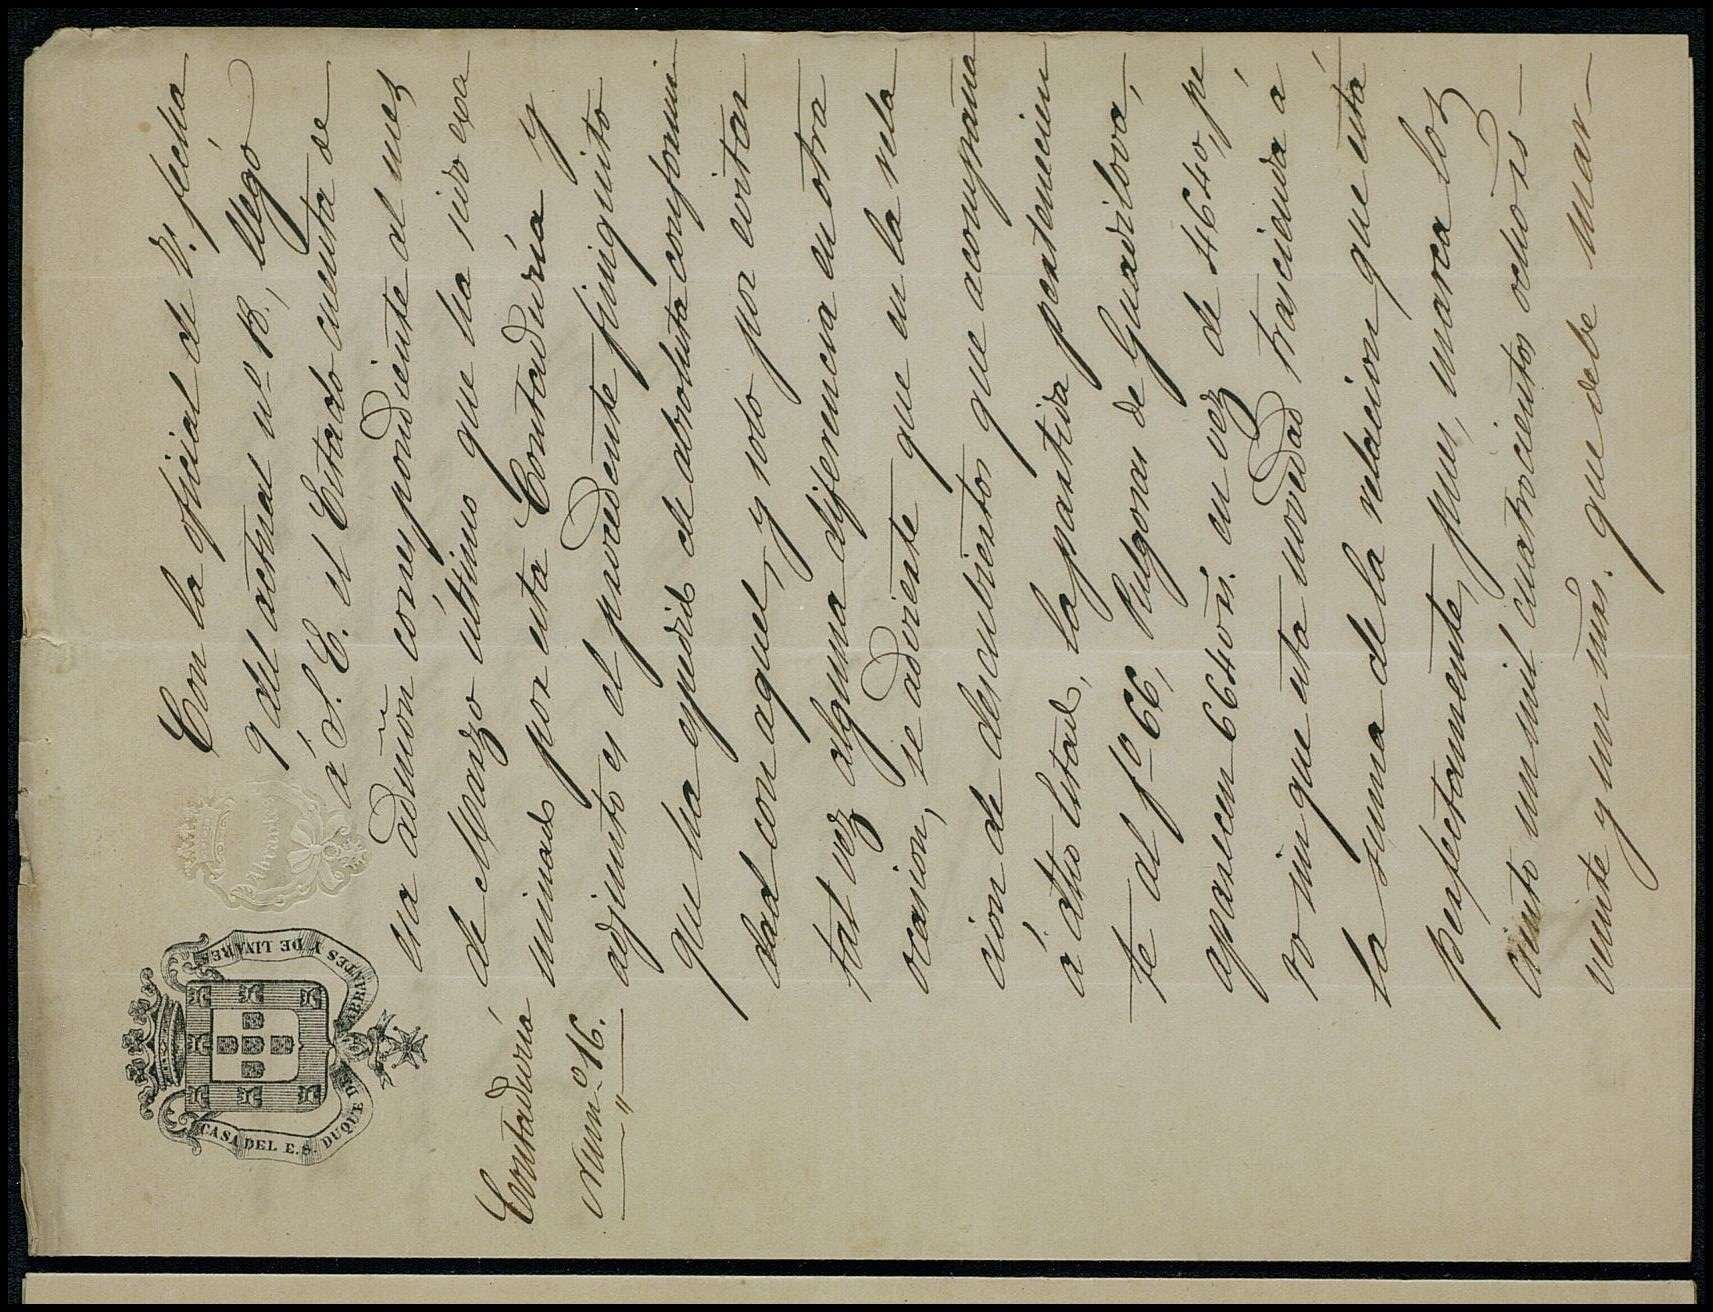 CASA DEL E. S. DUQUE DE ABRANTES Y DE LINARES
Abrantes
Contaduría
Num.º 16.
Con la oficial de V. fecha
9 del actual nº 13., llegó
á S. E. el Estado cuenta de
esa admón correspondiente al mes
de Marzo último que ha sido exa
minado por esta Contaduría y
adjunto es el procedente finiquito
que ha espedido de absoluta conformi
dad con aquel, y solo por evitar
tal vez alguna diferencia en otra
ocasion, se advierte que en la rela
cion de descubiertos que acompaña
á dho Estado, la partida pertenecien
te al fº 66, Pulgoras de Guadilova,
aparecen 6640 rs. en vez de 4640, pe
ro sin que esta novedad trascienda á
la suma de la relacion, que está
perfectamente, pues, marca los
ciento un mil cuatrocientos ochoₒ rs
veinte y un mrs. que debe mar-